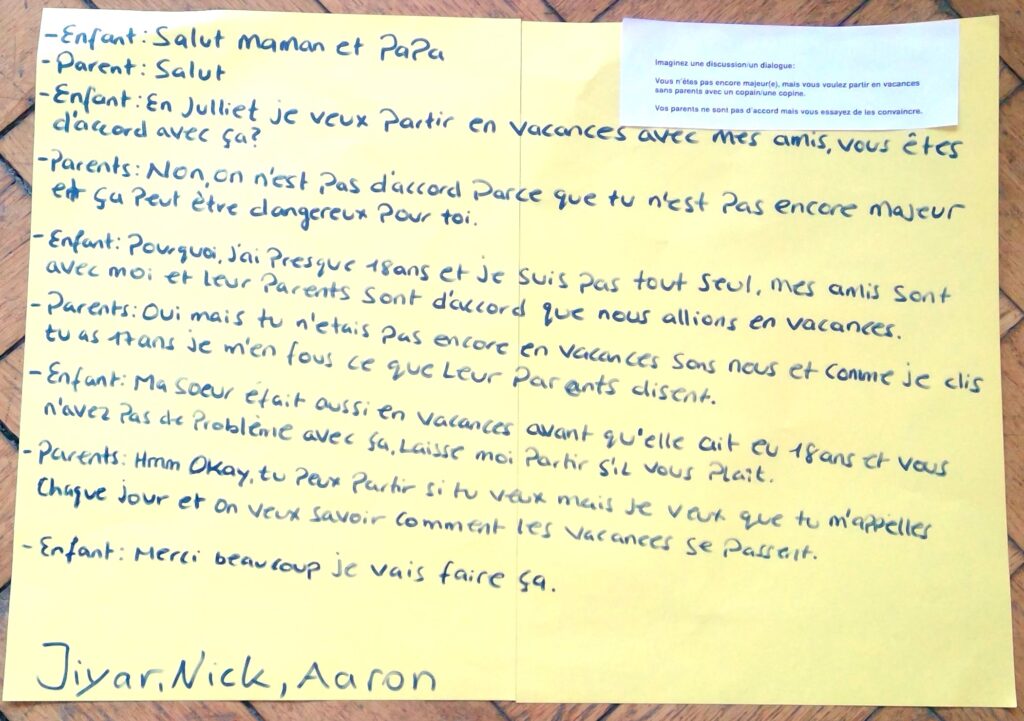 -Enfant: Salut maman et papa
-Parent: Salut
-Enfant: En Julliet je veux partir en vacances avec mes amis, vous êtes
d'accord avec ça?
-Parents: Non, on n'est pas d'accord parce que tu n'est pas encore majeur
et ça peut être dangereux pour toi.
-Enfant: Pourquoi, j'ai presque 18ans et je suis pas tout seul, mes amis sont
avec moi et leur parents sont d'accord que nous allions en vacances.
-Parents: Oui mais tu n'etais pas encore en vacances sans nous et comme je dis
tu as 17ans je m'en fous ce que leur parents disent.
-Enfant: Ma soeur était aussi en vacances avant qu'elle ait eu 18ans et vous
n'avez pas de problème avec ça, Laisse moi partir s'il vous plait.
-Parents: Hmm Okay, tu peux partir si tu veux mais je veux que tu m'appelles
chaque jour et on veux savoir comment les vacances se passent.
-Enfant: Merci beaucoup je vais faire ça.
Jiyar, Nick, Aaron
Imaginez une discussion/un dialogue:
Vous n'êtes pas encore majeur(e), mais vous voulez partir en vacances
sans parents avec un copain/une copine.
Vos parents ne sont pas d'accord mais vous essayez de les convaincre.